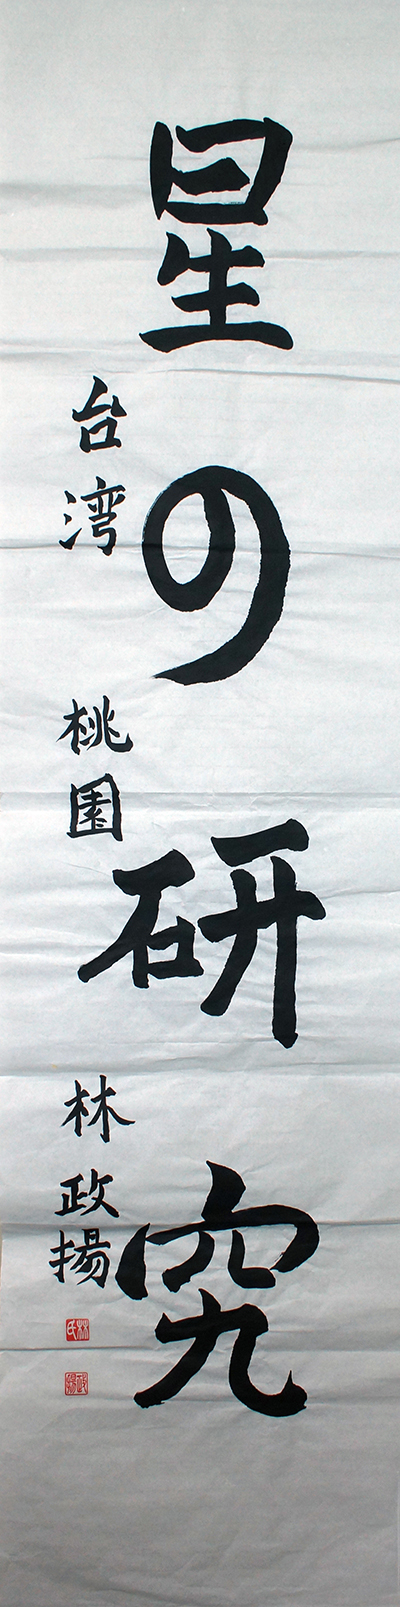 星の研究
台湾 桃園 林政揚
林氏